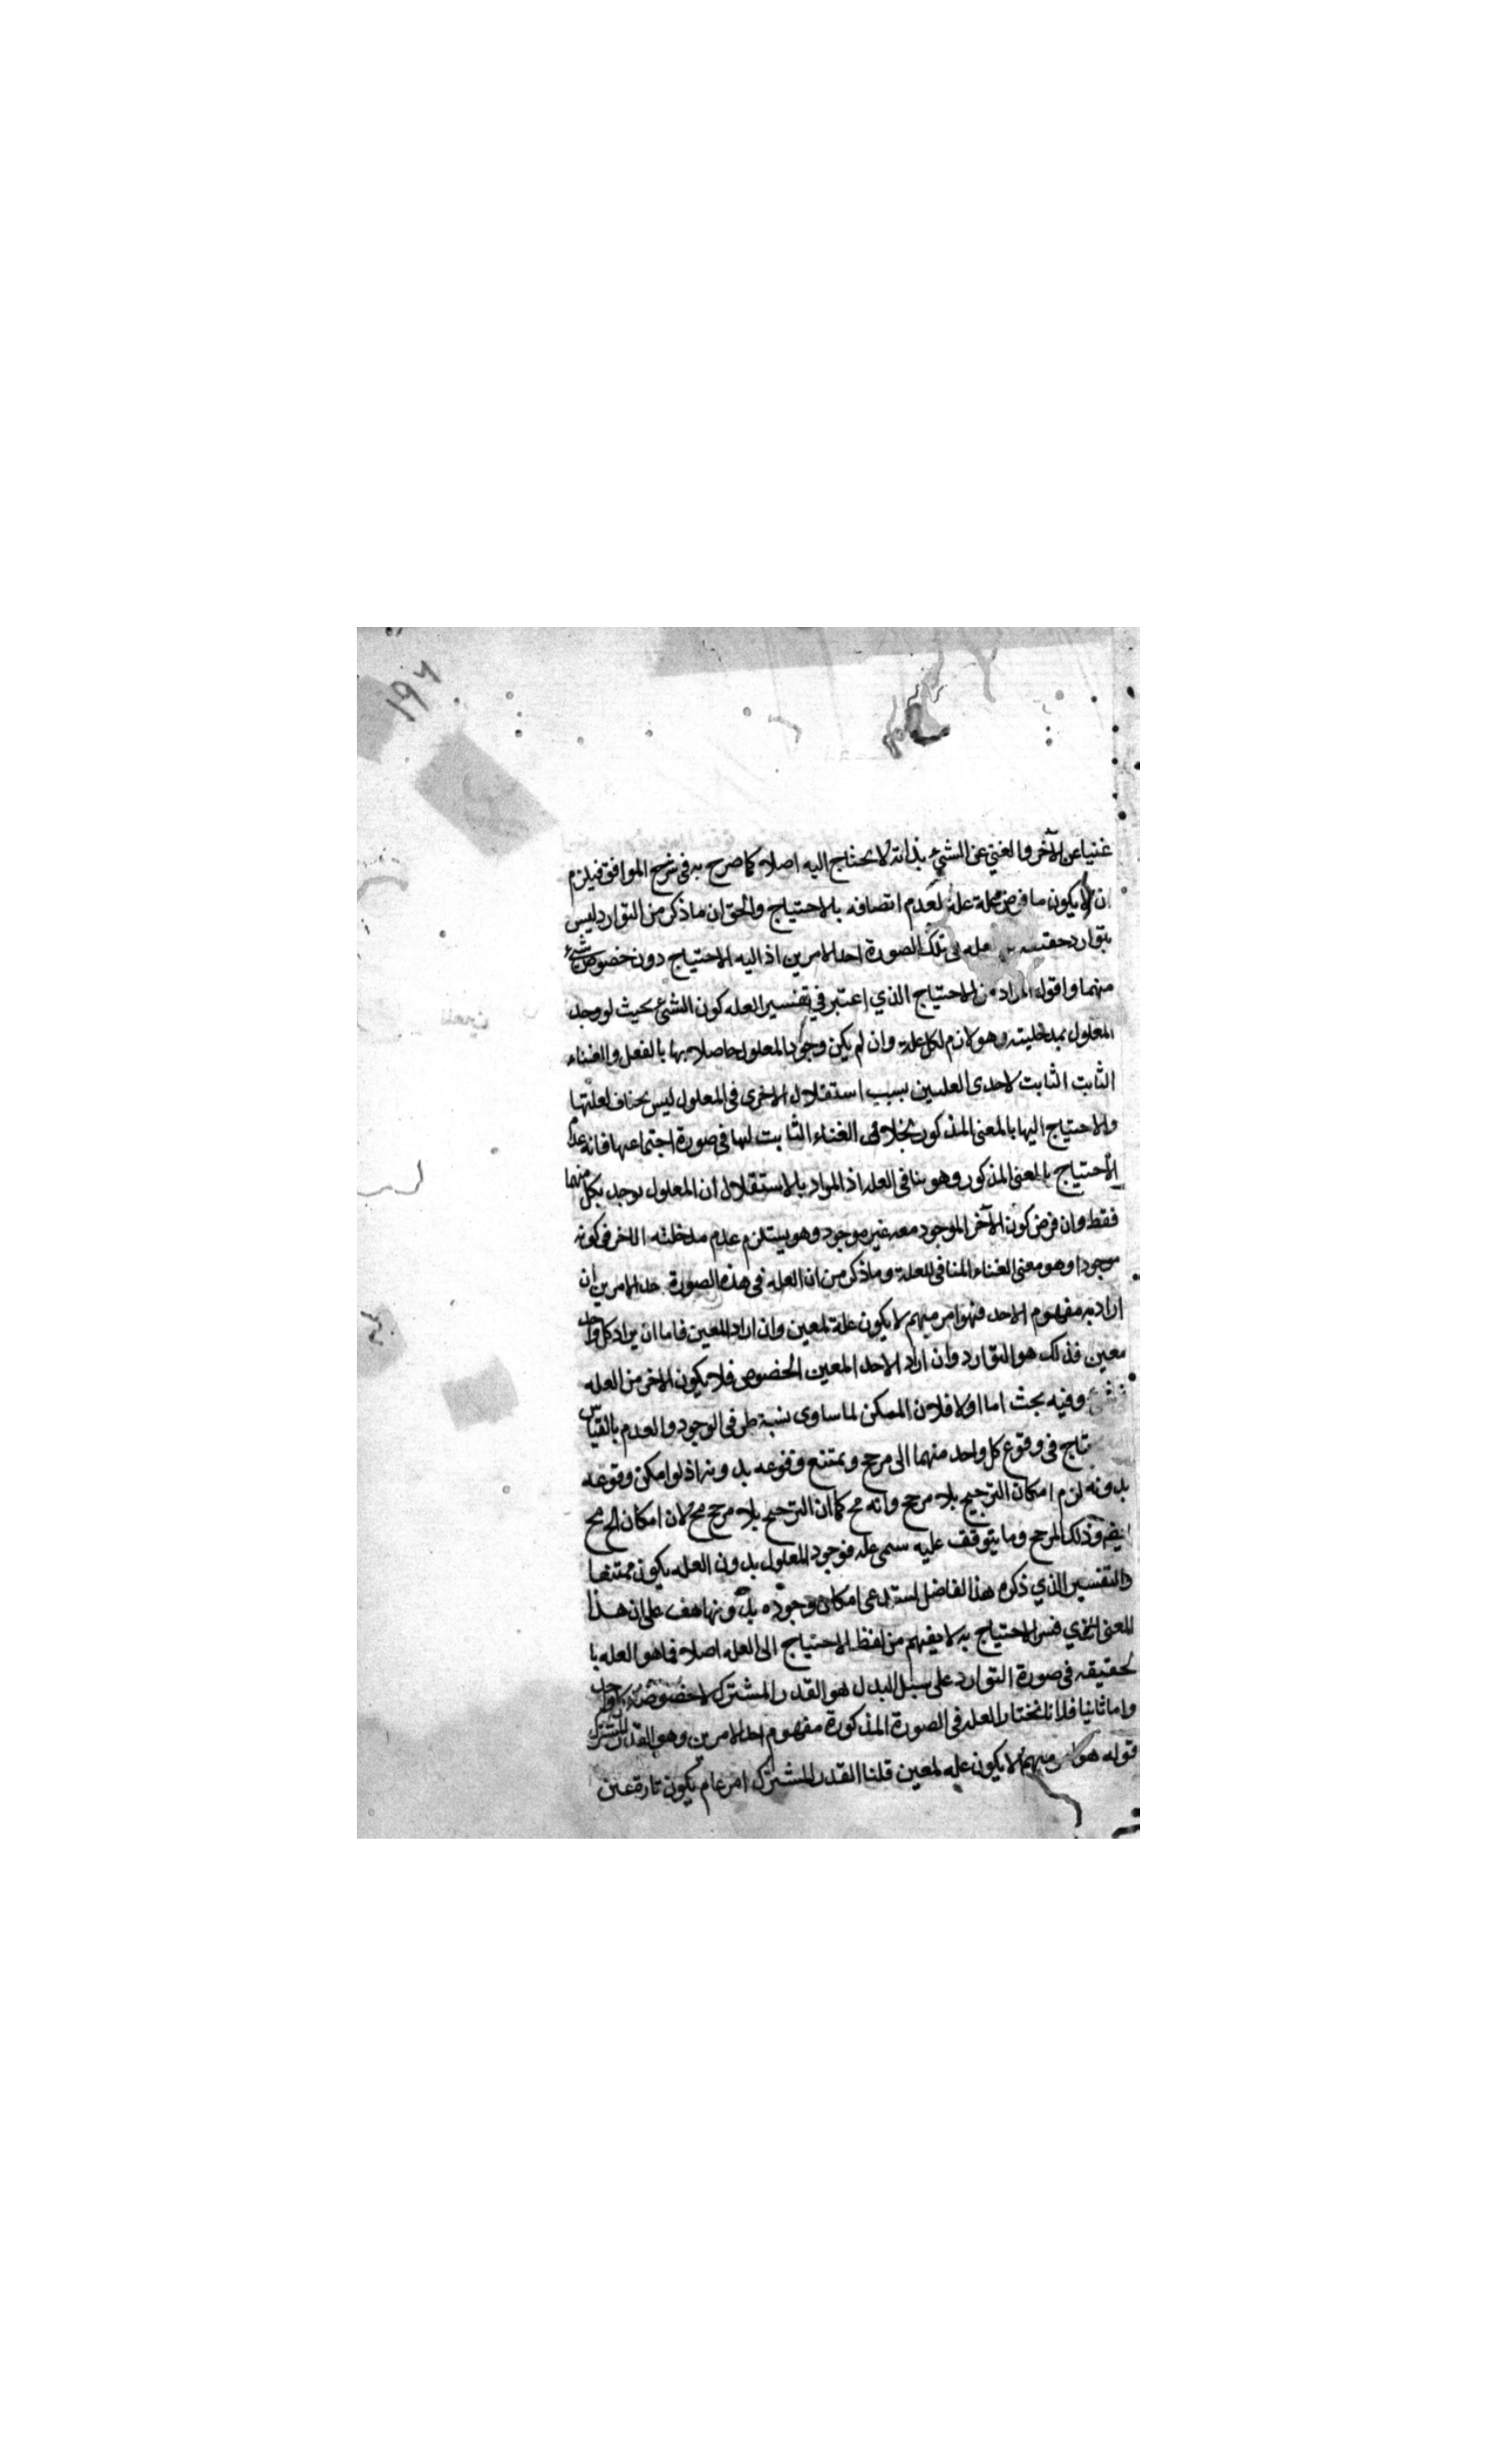 ١٩٦
غنيا عن الآخر والغني عن الشيء بذاته لا يحتاج اليه اصلا كما صرح به في شرح المواقف فيلزم
ان لا يكون ما فرض علة علة لعدم اتصافه بالاحتياج والحق ان ما ذكر من التوارد ليس
بتوارد حقيقة علة في تلك الصورة احد الامرين اذ اليه الاحتياج دون خصوص شيء
منهما واقول المراد من الاحتياج الذي اعتبر في تفسير العله كون الشيء بحيث لو وجد
المعلول بمدخليته وهو لازم لكل علة وان لم يكن وجود المعلول حاصلا بها بالفعل والغناء
الثابت الثابت لاحدى العلتين بسبب استقلال الاخرى في المعلول ليس بمناف لعليتها
والاحتياج اليها بالمعنى المذكور بخلاف الغناء الثابت لها في صورة اجتماعها فانه عدم
الاحتياج بالمعنى المذكور وهو ينافي العله اذ المراد بالاستقلال ان المعلول يوجد بكل منهما
فقط وان فرض كون الآخر الموجود معه غير موجود وهو يستلزم عدم مدخليته الاخر في كونه
موجودا وهو معنى الغناء المنافي للعلة وما ذكر من ان العله في هذه الصورة احد الامرين ان
اراد به مفهوم الاحد فهو امر مبهم لا يكون علة لمعين وان اراد المعين فاما ان يراد كل واحد
معين فذلك هو التوارد وان اراد الاحد المعين الخصوص فلا يكون الاخر من العله
في شيء وفيه بحث اما اولا فلان الممكن لما ساوى نسبة طرفي الوجود والعدم بالقياس
تاج في وقوع كل واحد منهما الى مرجح ويمتنع وقوعه بدونه اذ لو امكن وقوعه
بدونه لزم امكان الترجيح بلا مرجح وانه مح كما ان الترجيح بلا مرجح مح لان امكان المح مح
ايضم وذلك المرجح وما يتوقف عليه سمى علة فوجود المعلول بدون العله يكون ممتنعا
والتفسير الذي ذكره هذا الفاضل استدعى امكان وجوده بدونها هف على ان هذا
المعنى الذي فسر الاحتياج به لا يفهم من لفظ الاحتياج الى العله اصلا فما هو العله با
لحقيقه في صورة التوارد على سبيل البدل هو القدر المشترك لا خصوصية كل واحد
واما ثانيا فلانا نختار العله في الصورة المذكورة مفهوم احد الامرين وهو القدر المشترك
قوله هو امر مبهم لا يكون عله لمعين قلنا القدر المشترك امر عام يكون تارة عين